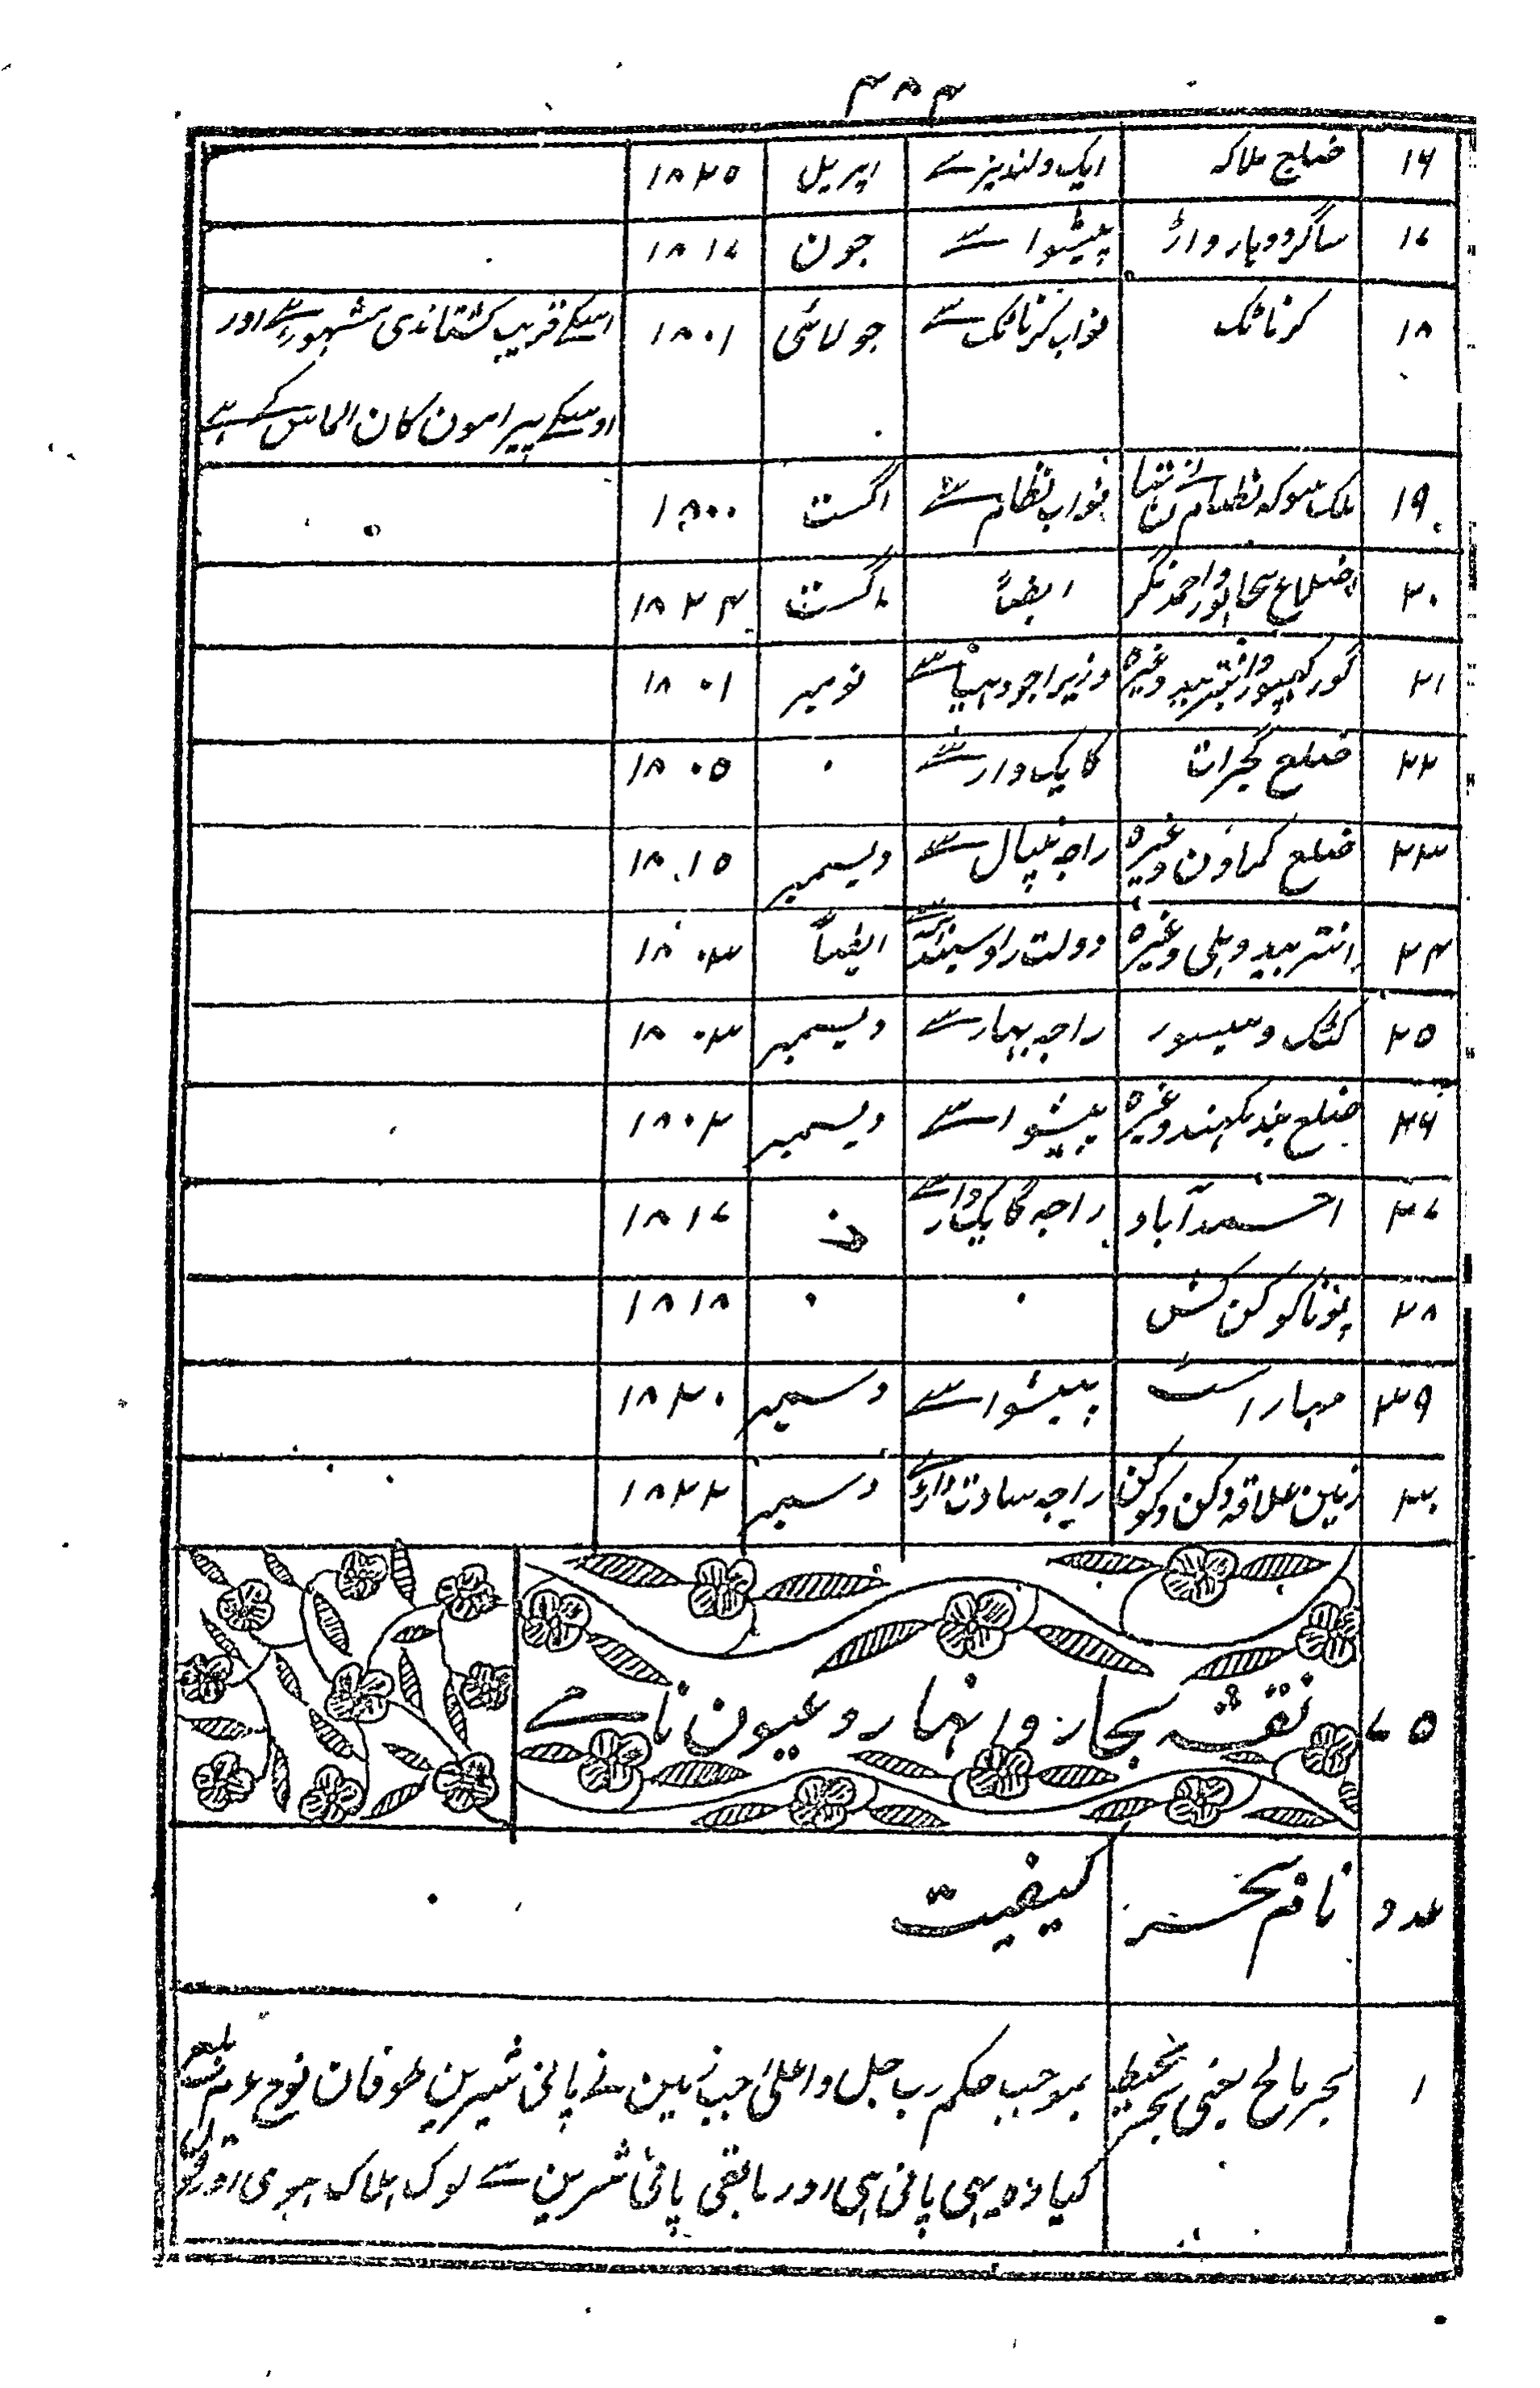 ۴۸۴
۱۶ ضلع ملاکہ ایک ولندیز سے اپریل ۱۸۲۵
۱۷ ساگر و دہارواڑ پیشوا سے جون ۱۸۱۷
۱۸ کرناٹک نواب کرناٹک سے جولائی ۱۸۰۱ اسکے قریب کشتقاندی مشہور ہے اور
اوسکے پیرامون کان الماس کے ہے
۱۹ نواب نظام سے اگست ۱۸۰۰
۲۰ اضلاع بیجاپور و احمد نگر ایضاً اگست ۱۸۲۴
۲۱ گورکہپور و انتربید وغیرہ وزیر اجودہیا سے نومبر ۱۸۰۱
۲۲ ضلع گجرات گایک وار سے ۰ ۱۸۰۵
۲۳ ضلع کماون وغیرہ راجہ نیپال سے ڈیسمبر ۱۸۱۵
۲۴ انتربید دہلی وغیرہ دولت راو سیندیہ سے ایضاً ۱۸۰۳
۲۵ کٹک و میسور راجہ بہار سے ڈیسمبر ۱۸۰۳
۲۶ ضلع بندیلکہند وغیرہ پیشوا سے ڈیسمبر ۱۸۰۲
۲۷ احمدآباد راجہ گایکوار سے ۱۸۱۷
۲۸ پونا کوکن ۰ ۰ ۱۸۱۸
۲۹ مہاراست پیشوا سے دسمبر ۱۸۲۰
۳۰ زمین علاقہ دکن و کوکن راجہ دسمبر ۱۸۲۲
۷۵ نقشہ بحار و انہار و عیون نامے
عدد نام بحر کیفیت
۱ بحر مالح یعنی بحر محیط بموجب حکم رب جل و اعلیٰ جب زمین نے پانی شیرین طوفان نوح ع م
کیا وہ یہی پانی ہی اور مابقی پانی شیرین سے لوک ہلاک ہوی اور